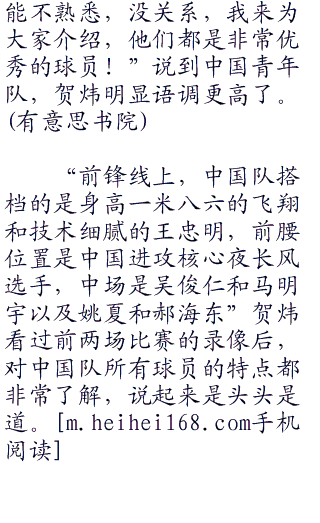 能不熟悉，没关系，我来为
大家介绍，他们都是非常优
秀的球员！”说到中国青年
队，贺炜明显语调更高了。
(有意思书院)
“前锋线上，中国队搭
档的是身高一米八六的飞翔
和技术细腻的王忠明，前腰
位置是中国进攻核心夜长风
选手，中场是吴俊仁和马明
宇以及姚夏和郝海东”贺炜
看过前两场比赛的录像后，
对中国队所有球员的特点都
非常了解，说起来是头头是
道。[m.heihei168.com手机
阅读]